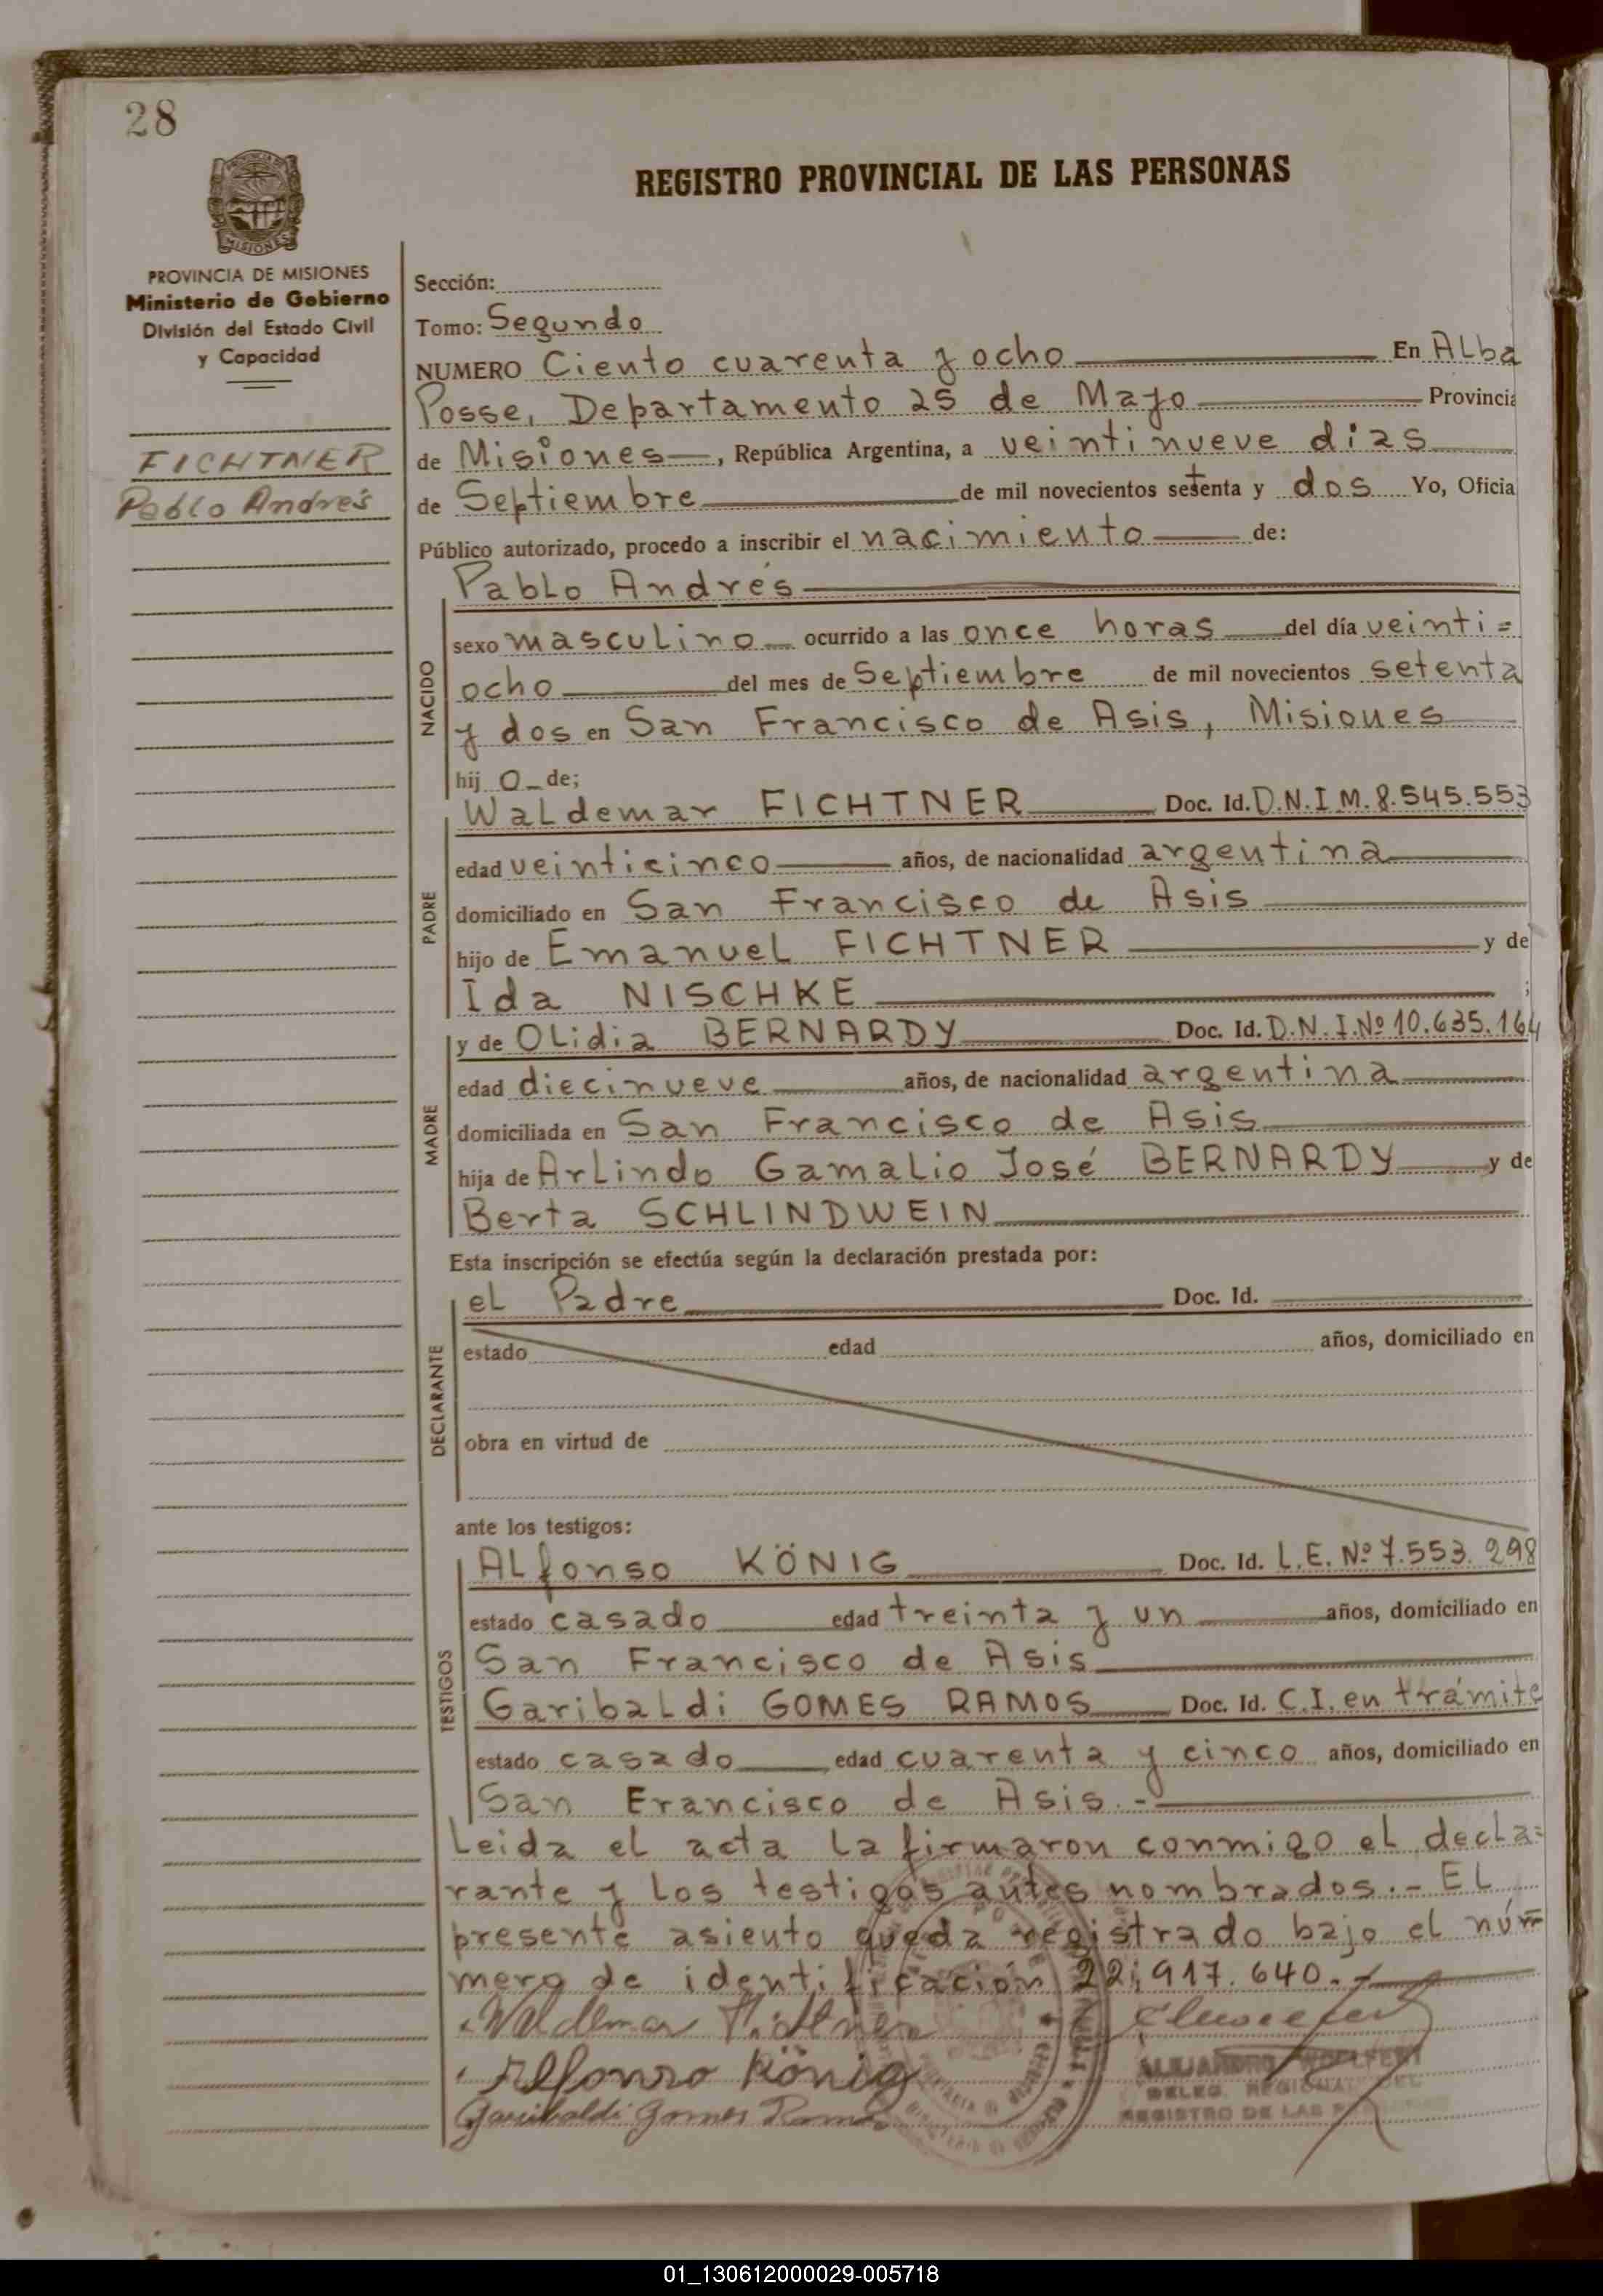 28
REGISTRO PROVINCIAL DE LAS PERSONAS
MISIONES
PROVINCIA DE MISIONES
Ministerio de Gobierno
División del Estado Civil
y Capacidad
FICHTNER
Pablo Andrés
Sección:
Tomo: Segundo
NUMERO Ciento cuarenta y ocho En ALba
Posse, Departamento 25 de Mayo Provincia
de Misiones, República Argentina, a veintinueve dias
de Septiembre de mil novecientos setenta y dos Yo, Oficia
Público autorizado, procedo a inscribir el nacimiento de:
NACIDO
PabLo Andrés
sexo mascuLino ocurrido a las once horas del día veinti=
ocho del mes de Septiembre de mil novecientos setenta
y dos en San Francisco de Asis, Misiones
hijo de;
PADRE
WaLdemar FICHTNER Doc. Id. D.N.I M. 8.545.553
edad veinticinco años, de nacionalidad argentina
domiciliado en San Francisco de Asis
hijo de EmanueL FICHTNER y de
Ida NISCHKE ;
MADRE
y de OLidia BERNARDY Doc. Id. D.N.I.Nº 10.635.164
edad diecinueve años, de nacionalidad argentina
domiciliada en San Francisco de Asis
hija de ArLindo GamaLio José BERNARDY y de
Berta SCHLINDWEIN
Esta inscripción se efectúa según la declaración prestada por:
DECLARANTE
eL Padre Doc. Id.
estado edad años, domiciliado en
obra en virtud de
ante los testigos:
TESTIGOS
ALfonso KÖNIG Doc. Id. L.E. Nº 7.553.298
estado casado edad treinta y un años, domiciliado en
San Francisco de Asis
GaribaLdi GOMES RAMOS Doc. Id. C.I. en trámite
estado casado edad cuarenta y cinco años, domiciliado en
San Francisco de Asis.-
Leida eL acta La firmaron conmigo eL decLa=
rante y Los testigos antes nombrados.- EL
presente asiento queda registrado bajo eL nú=
mero de identificación 22.917.640.-
Waldemar Fichtner
Alfonso König
Garibaldi Gomes Ramos
ALEJANDRO
DELEG. REGIONAL DEL
REGISTRO DE LAS
01_130612000029-005718